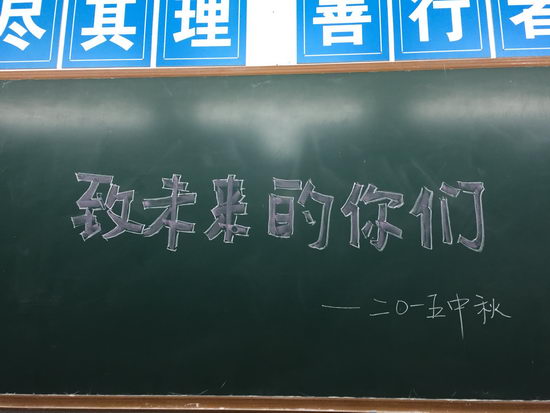 尽其理 善行者
致未来的你们
一二〇一五中秋